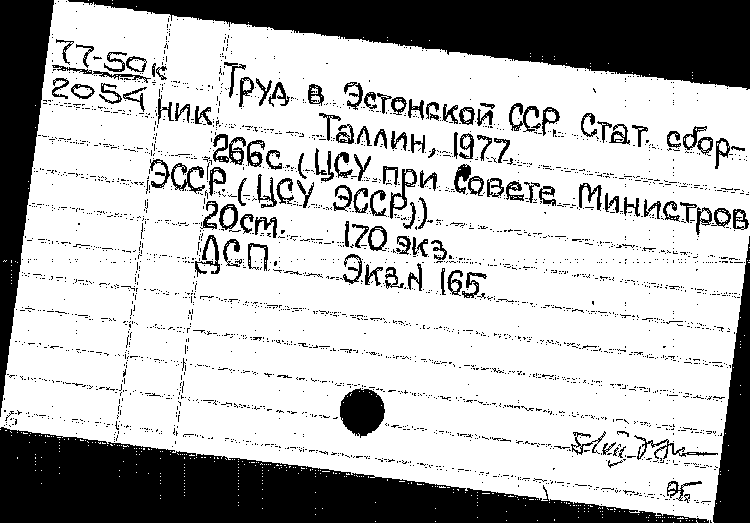 77-50к
2054
Труд в Эстонской ССР. Стат. сбор-
ник
Таллин, 1977.
266с. (ЦСУ при Совете Министров
ЭССР (ЦСУ ЭССР)).
20см. 170 экз.
ДСП. Экз.N 165.